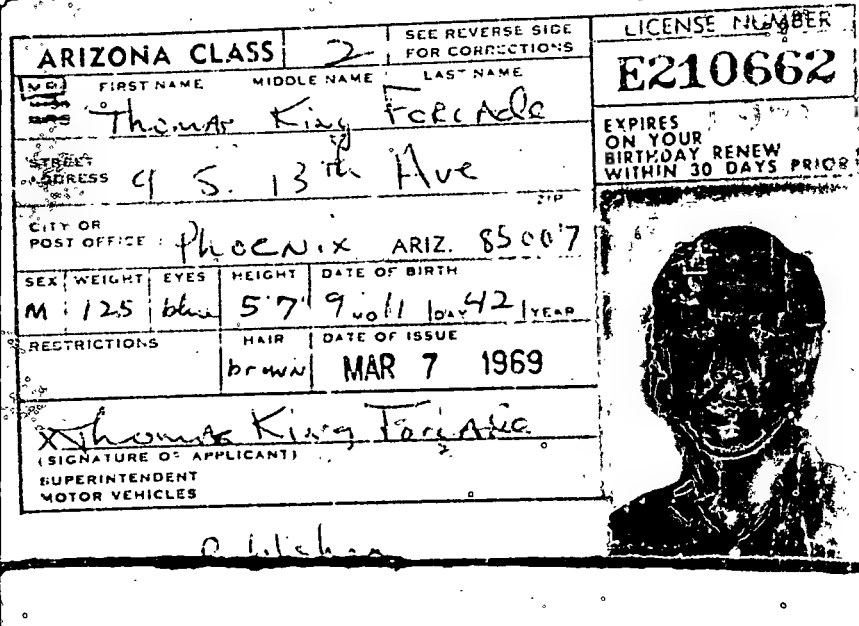 ARIZONA CLASS 2
SEE REVERSE SIDE
FOR CORRECTIONS
LICENSE NUMBER
E210662
MR FIRST NAME MIDDLE NAME LAST NAME
MRS
Thomas King Forcade
EXPIRES
ON YOUR
BIRTHDAY RENEW
WITHIN 30 DAYS PRIOR
STREET
ADDRESS 9 S. 13th Ave
ZIP
CITY OR
POST OFFICE : Phoenix ARIZ. 85007
SEX WEIGHT EYES HEIGHT DATE OF BIRTH
M 125 blue 5'7" 9 MO 11 DAY 42 YEAR
RESTRICTIONS HAIR DATE OF ISSUE
brown MAR 7 1969
X Thomas King Forcade
(SIGNATURE OF APPLICANT)
SUPERINTENDENT
MOTOR VEHICLES